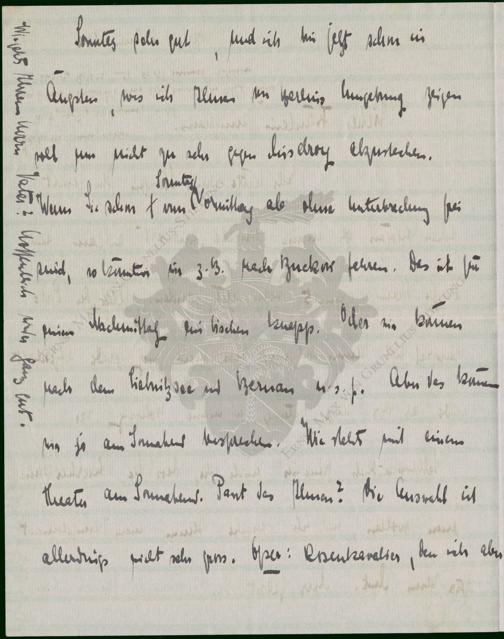 Sonntag sehr gut, und ich bin jetzt schon in
Ängsten, was ich Ihnen von Berlins Umgebung zeigen
soll um nicht zu sehr gegen abzustechen.
Wenn Sie schon Sonntag vom Vormittag ab ohne Unterbrechung frei
sind, so könnten wir z.B. nach Buckow fahren. Das ist für
einen Nachmittag ein bischen knapp. Oder wir können
nach dem Liebnitzsee und Bernau u.s.f. Aber das können
wir ja am Sonnabend besprechen. Wie steht's mit einem
Theater am Sonnabend. Passt das Ihnen? Die Auswahl ist
allerdings nicht sehr gross. Oper: Rosenkavalier, den ich aber
Wie geht's Ihrem Herrn Vater? Hoffentlich wieder ganz gut.